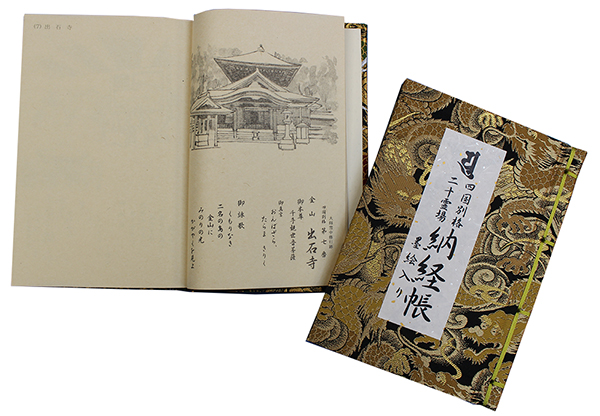 (7) 出石寺
四国別格 第七番
金山 出石寺
御本尊 千手観世音菩薩
御真言 おんばざら
たらま きりく
御詠歌
くもりなき
二名の島の
金山に
みのりの光
四国別格
二十霊場
納経帳
墨絵入り